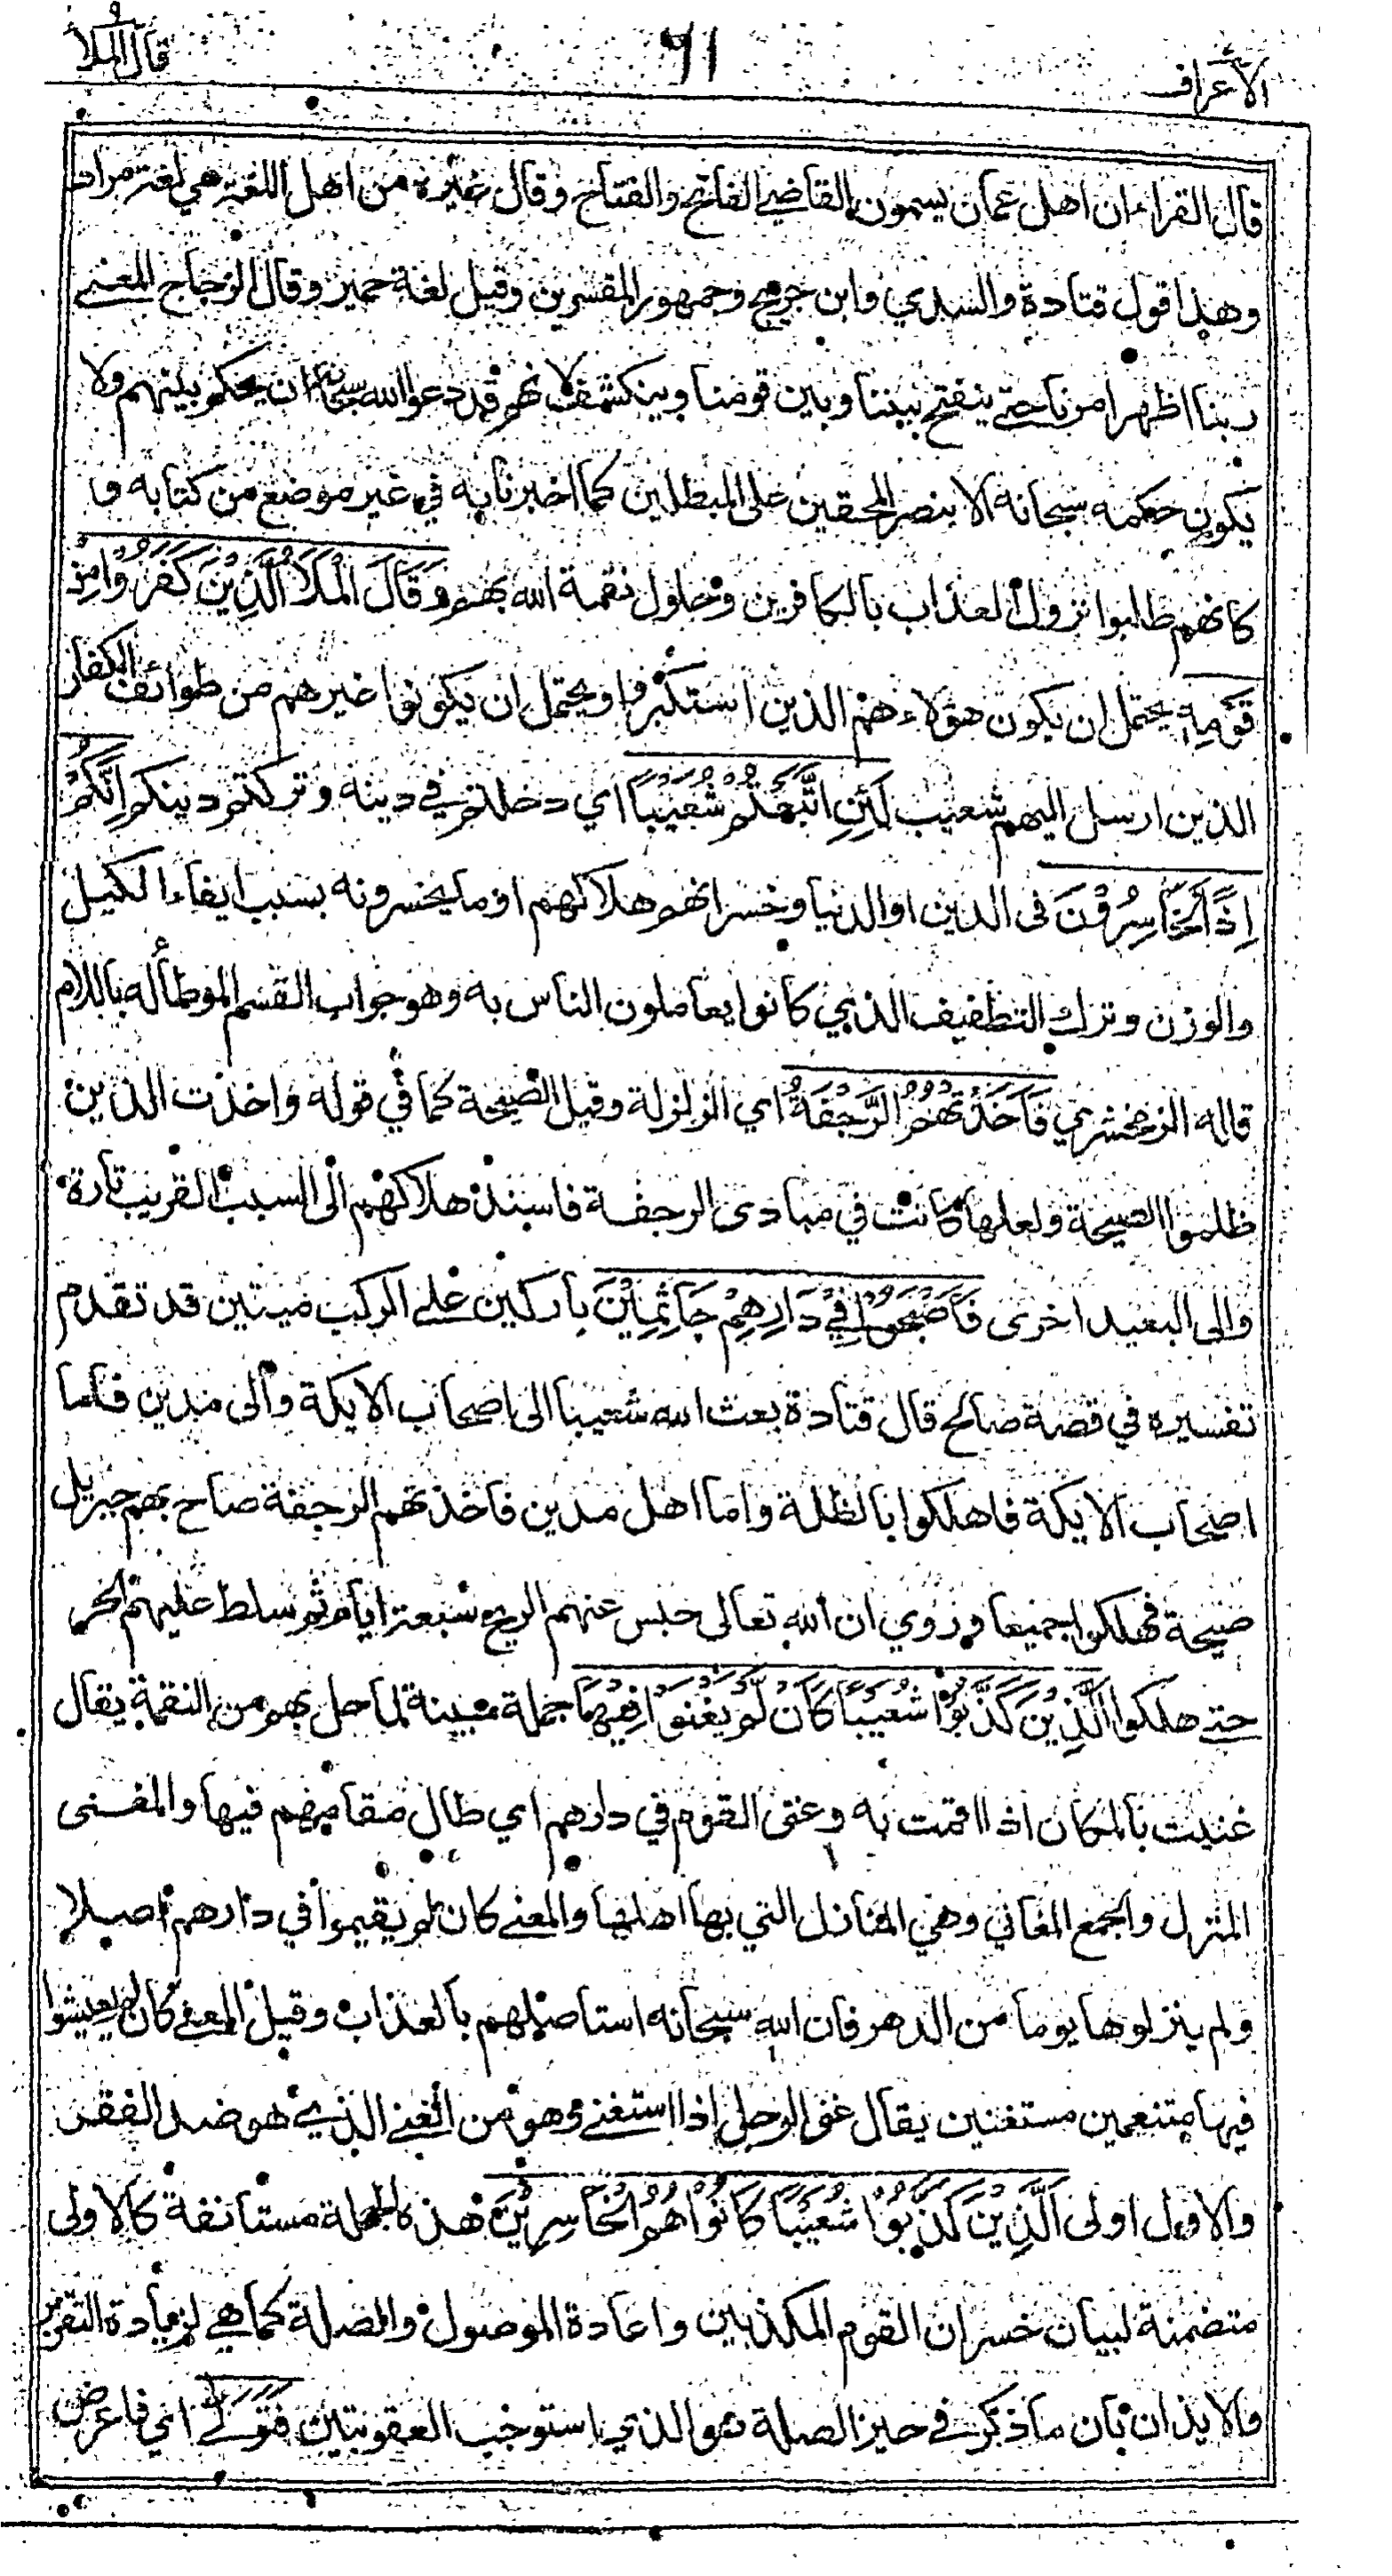 الأعراف ٦١ قال الملأ ٩
قال الفراء ان اهل عمان يسمون القاضي الفاتح والفتاح وقال غيره من اهل اللغة هي لغة مراد
وهذا قول قتادة والسدي وابن جريج وجمهور المفسرين وقيل لغة حمير وقال الزجاج المعنى
ربنا اظهر امرنا حتى ينفتح بيننا وبين قومنا وينكشف لانهم قد دعوا الله سبحانه ان يحكم بينهم ولا
يكون حكمه سبحانه الا بنصر المحقين على المبطلين كما اخبرنا به في غير موضع من كتابه و
كانهم طلبوا نزول العذاب بالكافرين وحلول نقمة الله بهم وَقَالَ الْمَلَأُ الَّذِيْنَ كَفَرُوْا مِنْ
قَوْمِهٖ يحتمل ان يكون هؤلاء هم الذين استكبروا ويحتمل ان يكونوا غيرهم من طوائف الكفار
الذين ارسل اليهم شعيب لَئِنِ اتَّبَعْتُمْ شُعَيْبًا اي دخلتم في دينه وتركتم دينكم اِنَّكُمْ
اِذًا لَّخَاسِرُوْنَ فى الدين او الدنيا وخسرانهم هلاكهم او ما يخسرونه بسبب ايفاء الكيل
والوزن وترك التطفيف الذي كانوا يعاملون الناس به وهو جواب القسم الموطأ له باللام
قاله الزمخشري فَاَخَذَتْهُمُ الرَّجْفَةُ اي الزلزلة وقيل الصيحة كما في قوله واخذت الذين
ظلموا الصيحة ولعلها كانت في مبادى الرجفة فاسند هلاكهم الى السبب القريب تارة
والى البعيد اخرى فَاَصْبَحُوْا فِيْ دَارِهِمْ جَاثِمِيْنَ باركين على الركب ميتين قد تقدم
تفسيره في قصة صالح قال قتادة بعث الله شعيبا الى اصحاب الايكة والى مدين فاما
اصحاب الايكة فاهلكوا بالظلة واما اهل مدين فاخذتهم الرجفة صاح بهم جبريل
صيحة فهلكوا جميعا وروي ان الله تعالى حبس عنهم الريح سبعة ايام ثم سلط عليهم الحر
حتى هلكوا الَّذِيْنَ كَذَّبُوْا شُعَيْبًا كَاَنْ لَّمْ يَغْنَوْا فِيْهَا جملة مبينة لما حل بهم من النقمة يقال
غنيت بالمكان اذا اقمت به وغنى القوم في دارهم اي طال مقامهم فيها والمغنى
المنزل والجمع المغاني وهي المنازل التي بها اهلها والمعنى كان لم يقيموا في دارهم اصلا
ولم ينزلوها يوما من الدهر فان الله سبحانه استاصلهم بالعذاب وقيل المعنى كان لم يعيشوا
فيها متنعمين مستغنين يقال غنى الرجل اذا استغنى وهو من الغنى الذي هو ضد الفقر
والاول اولى اَلَّذِيْنَ كَذَّبُوْا شُعَيْبًا كَانُوْا هُمُ الْخَاسِرِيْنَ هذه الجملة مستانفة كالاولى
متضمنة لبيان خسران القوم المكذبين واعادة الموصول والصلة كما هي لزيادة التقرير
والايذان بان ما ذكر في حيز الصلة هو الذي استوجب العقوبتين فَتَوَلّٰى اي فاعرض